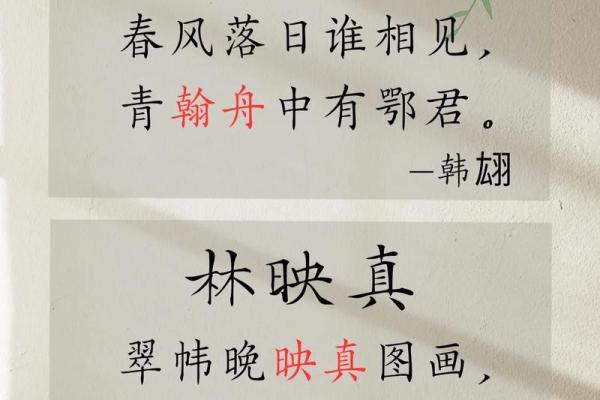 春风落日谁相见，
青翰舟中有鄂君。
—韩翃
林映真
翠帏晚映真图画，